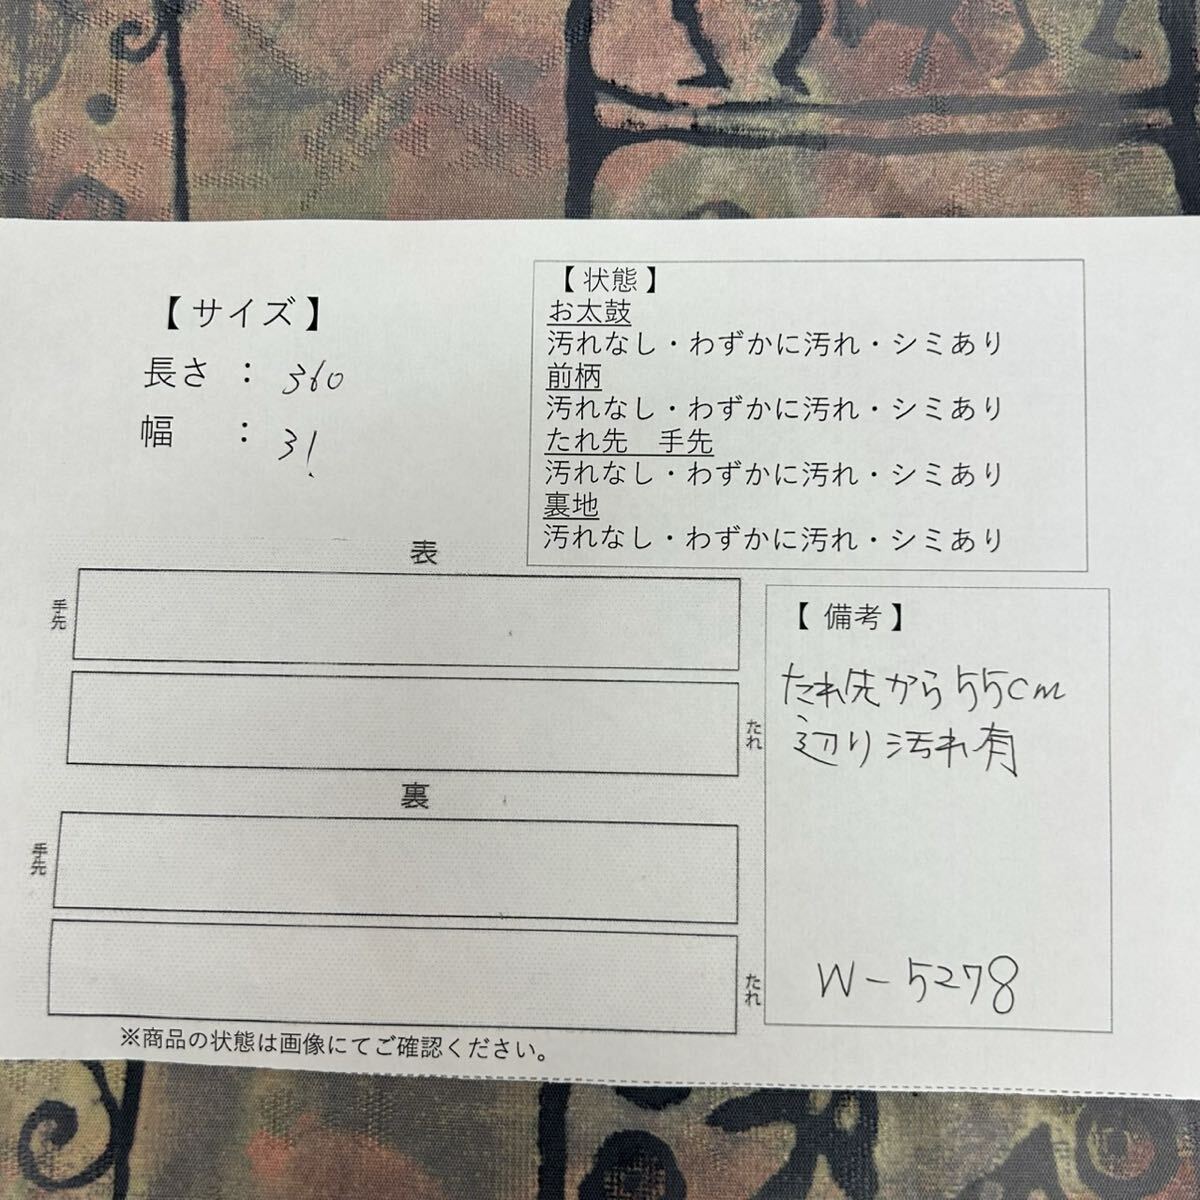 【 サイズ 】
長さ ： 360
幅 ： 31.
【 状態 】
お太鼓
汚れなし・わずかに汚れ・シミあり
前柄
汚れなし・わずかに汚れ・シミあり
たれ先 手先
汚れなし・わずかに汚れ・シミあり
裏地
汚れなし・わずかに汚れ・シミあり
表
手先
たれ
裏
手先
たれ
【 備考 】
たれ先から55cm
辺り汚れ有
W-5278
※商品の状態は画像にてご確認ください。